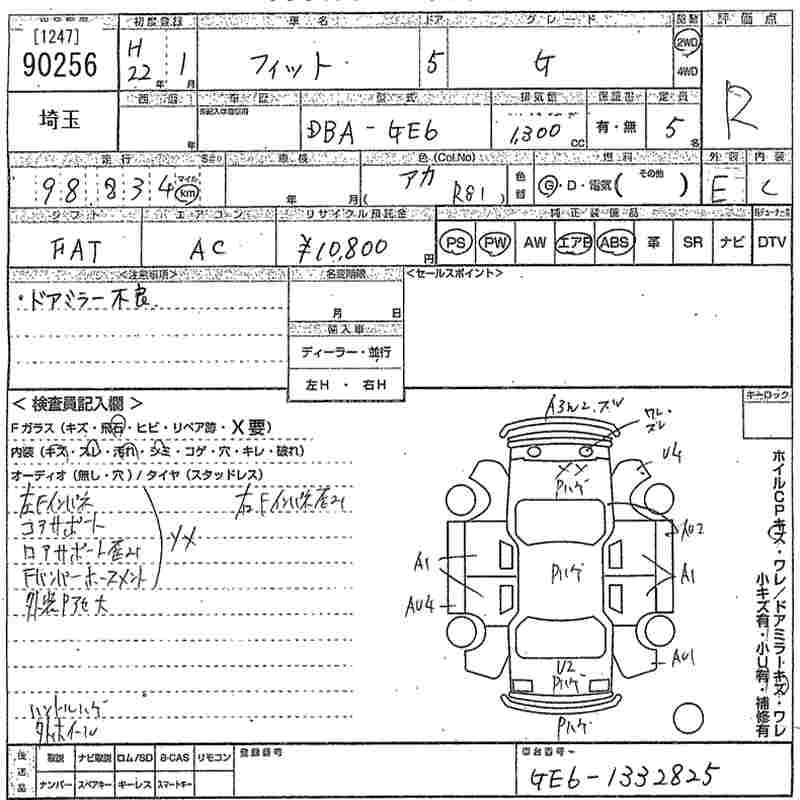 [1247]
90256
初度登録 車名 ドア グレード 駆動 評価点
H 22年 1月 フィット 5 G 2WD 4WD R
埼玉
車歴 車証 型式 排気量 保証書 定員
年 DBA-GE6 1,300 CC 有・無 5名
走行 車検 色(Col.No) 燃料 外装 内装
98834 マイル km 年 月 アカ (R81) 色替 G・D・電気( その他 ) E C
シフト エアコン リサイクル預託金 純正装備品
FAT AC ¥10,800円 PS PW AW エアB ABS 革 SR ナビ DTV
<注意事項> 名変期限 <セールスポイント>
・ドアミラー不良
月 日
輸入車
ディーラー・並行
左H・右H
< 検査員記入欄 > キーロック
Fガラス (キズ・飛石・ヒビ・リペア跡・X要)
内装 (キズ・スレ・汚れ・シミ・コゲ・穴・キレ・破れ)
オーディオ (無し・穴) / タイヤ (スタッドレス)
左Fインパネ 右Fインパネ歪み
コアサポート
ロアサポート歪み XX
Fバンパーホースメント
ハンドルハゲ
A3 ワレ・ズレ
U4
XX
Pハゲ
AU2
A1 Pハゲ A1
AU4
AU1
U2
Pハゲ
Pハゲ
ホイルCPキズ・ワレ/ドアミラーキズ・ワレ
小キズ有・小U有・補修有
後送品 取説 ナビ取説 ロム/SD B-CAS リモコン 登録番号 車台番号
ナンバー スペアキー キーレス スマートキー GE6-1332825